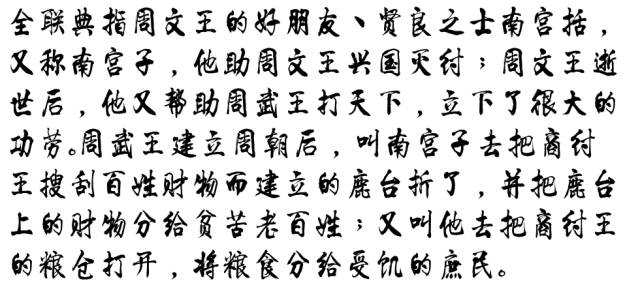 全联典指周文王的好朋友、贤良之士南宫括，
又称南宫子，他助周文王兴国灭纣；周文王逝
世后，他又帮助周武王打天下，立下了很大的
功劳。周武王建立周朝后，叫南宫子去把商纣
王搜刮百姓财物而建立的鹿台折了，并把鹿台
上的财物分给贫苦老百姓；又叫他去把商纣王
的粮仓打开，将粮食分给受饥的庶民。